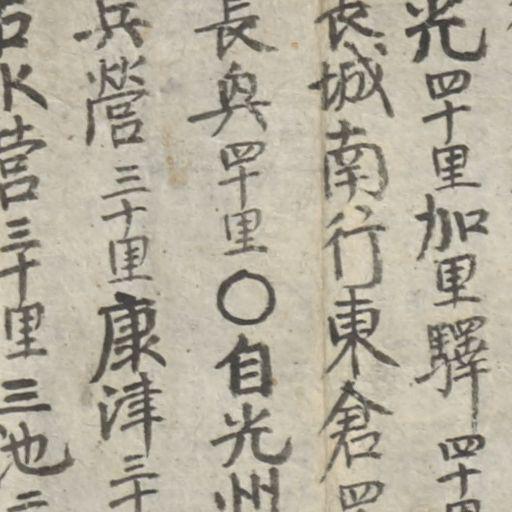 光四十里加里驛四十里
長城南行東倉四
長興四十里○自光州
兵營三十里康津三十
右水營三十里三池二